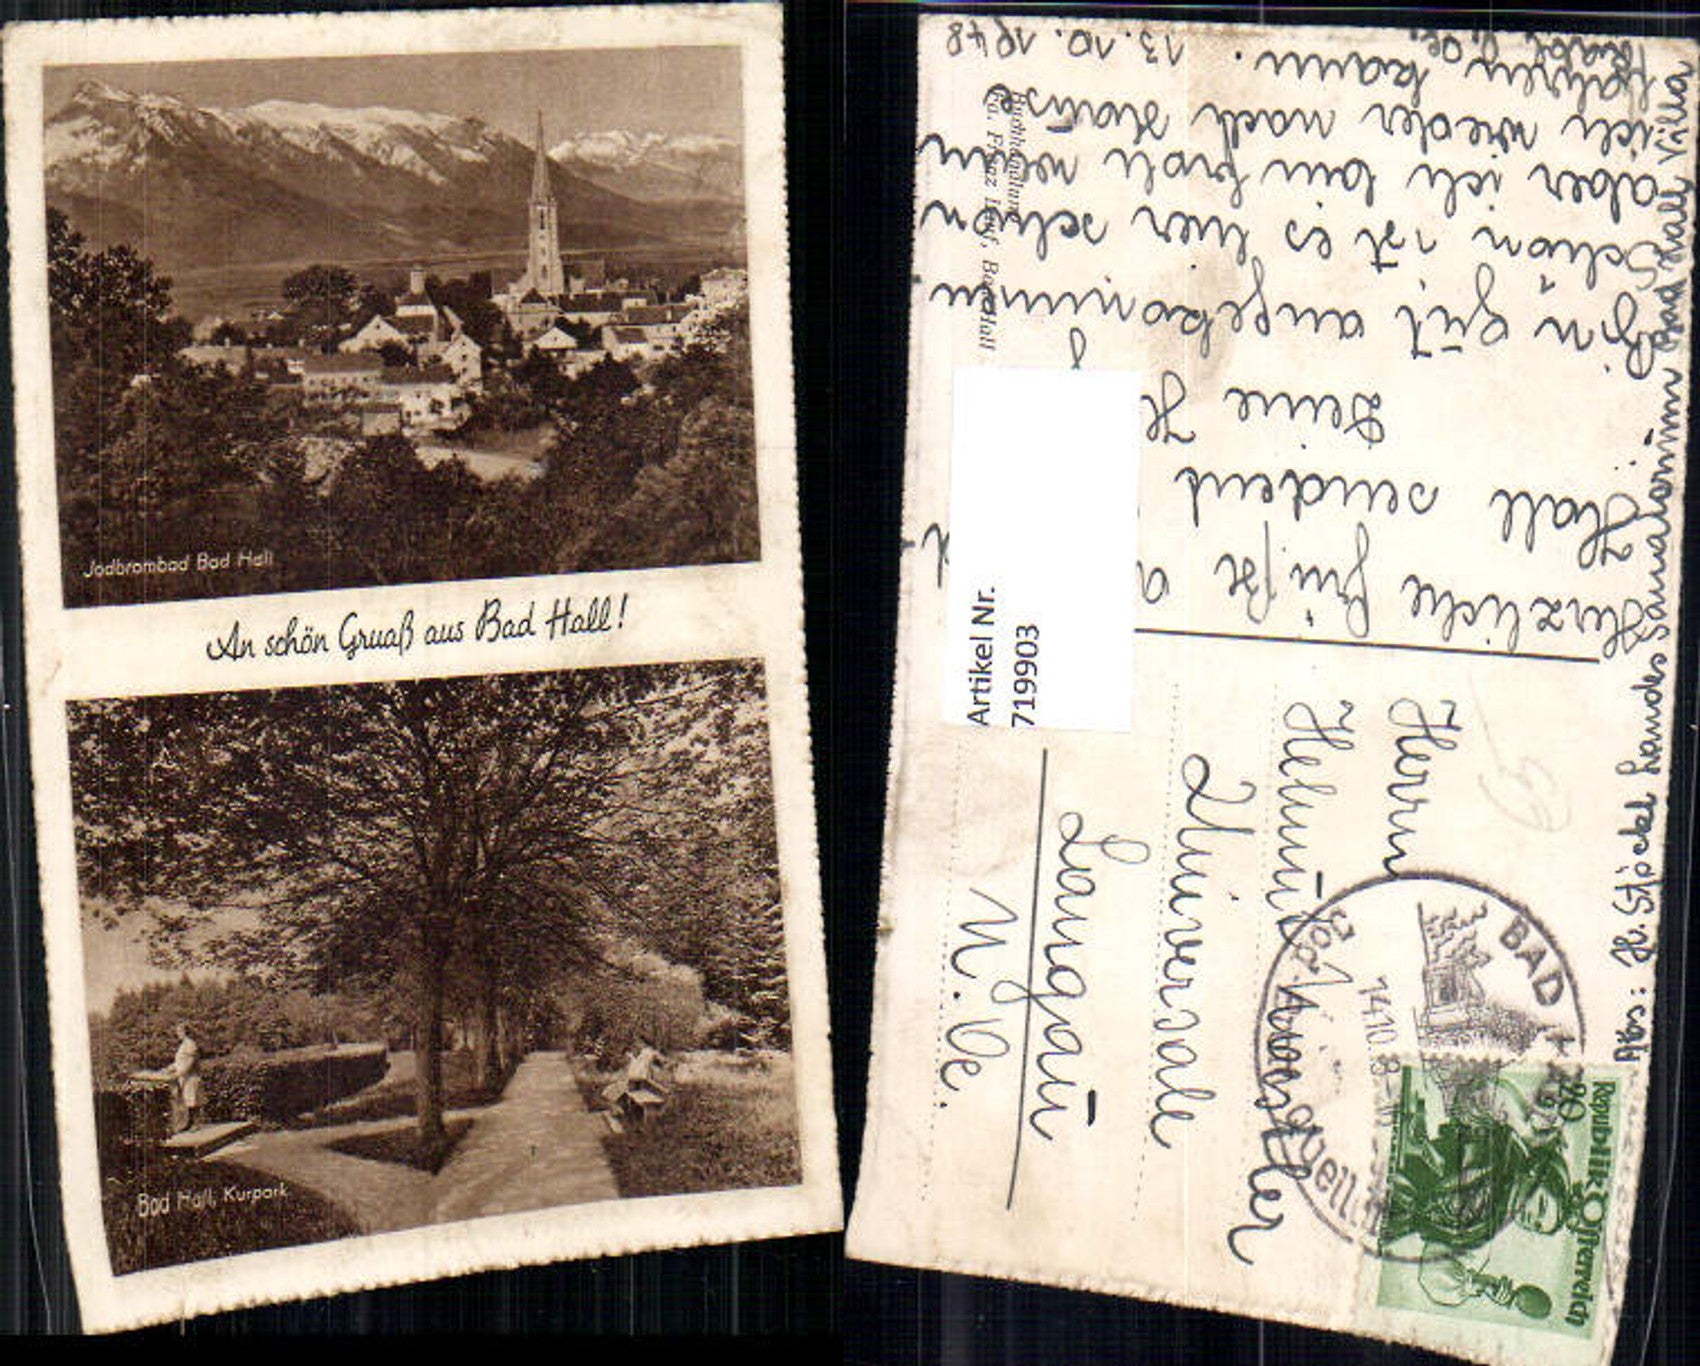 Jodbrombad Bad Hall
An schön Gruaß aus Bad Hall!
Bad Hall, Kurpark
Herzliche Grüße a
Hall sendent
Deine
Bin güt angekommen
Schön ist es hier schon
aber ich bin froh wenn
ich wieder nach Hause
fahren kann. 13.10.1948
Abs: H. Stöckel Landes Sanatorium Bad Hall Villa
Buchhandlung
Fot. Franz Bad Hall.
Artikel Nr.
719903
Herrn
Helmüt
Universale
Langaü
N.Ö.
BAD
14.10.
20
Republik Österreich